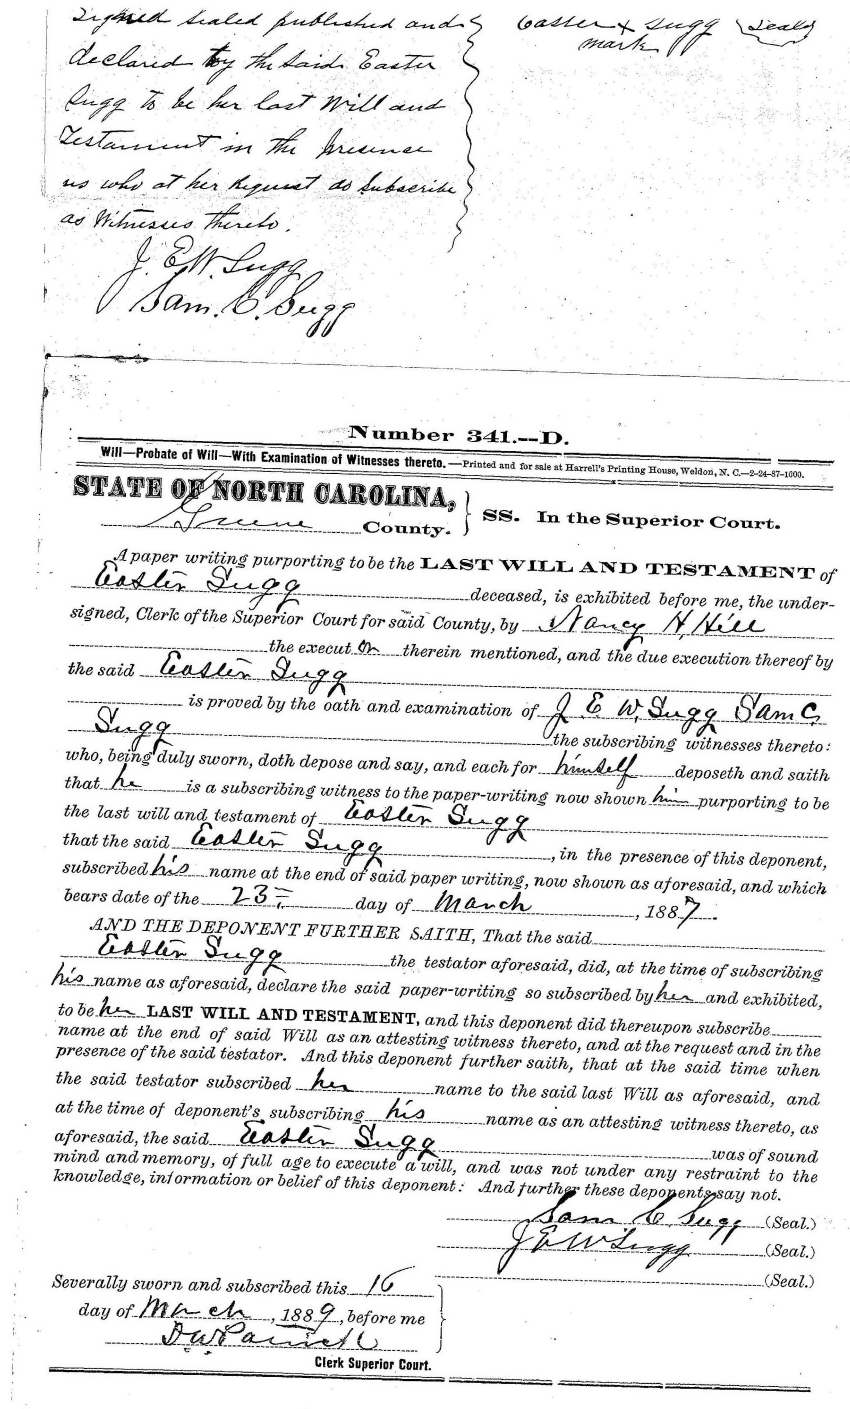 Signed sealed published and
declared by the said Easter
Sugg to be her last Will and
Testament in the presence
us who at her request do Subscribe
as Witnesses thereto.
J. E. W. Sugg
Sam. C. Sugg
Easter x Sugg (seal)
mark
Number 341.--D.
Will—Probate of Will—With Examination of Witnesses thereto.—Printed and for sale at Harrell's Printing House, Weldon, N. C.—2-24-87-1000.
STATE OF NORTH CAROLINA,
Greene County. SS. In the Superior Court.
A paper writing purporting to be the LAST WILL AND TESTAMENT of
Easter Sugg deceased, is exhibited before me, the under-
signed, Clerk of the Superior Court for said County, by Nancy H. Hill
the execut or therein mentioned, and the due execution thereof by
the said Easter Sugg
is proved by the oath and examination of J E W, Sugg Sam C.
Sugg the subscribing witnesses thereto:
who, being duly sworn, doth depose and say, and each for himself deposeth and saith
that he is a subscribing witness to the paper-writing now shown him purporting to be
the last will and testament of Easter Sugg
that the said Easter Sugg, in the presence of this deponent,
subscribed his name at the end of said paper writing, now shown as aforesaid, and which
bears date of the 23 day of March, 1887.
AND THE DEPONENT FURTHER SAITH, That the said
Easter Sugg the testator aforesaid, did, at the time of subscribing
his name as aforesaid, declare the said paper-writing so subscribed by her and exhibited,
to be her LAST WILL AND TESTAMENT, and this deponent did thereupon subscribe
name at the end of said Will as an attesting witness thereto, and at the request and in the
presence of the said testator. And this deponent further saith, that at the said time when
the said testator subscribed her name to the said last Will as aforesaid, and
at the time of deponent's subscribing his name as an attesting witness thereto, as
aforesaid, the said Easter Sugg was of sound
mind and memory, of full age to execute a will, and was not under any restraint to the
knowledge, information or belief of this deponent: And further these deponents say not.
Sam C. Sugg (Seal.)
J E W Sugg (Seal.)
(Seal.)
Severally sworn and subscribed this 16
day of March, 1889, before me
D W Patrick
Clerk Superior Court.